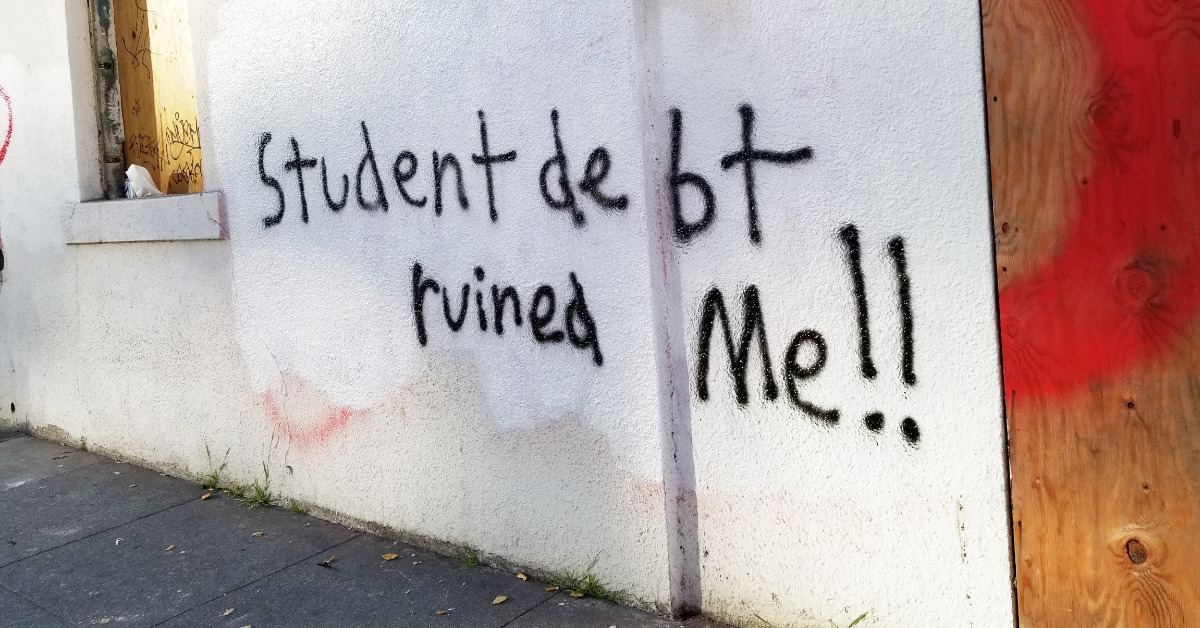 Student debt
ruined Me!!